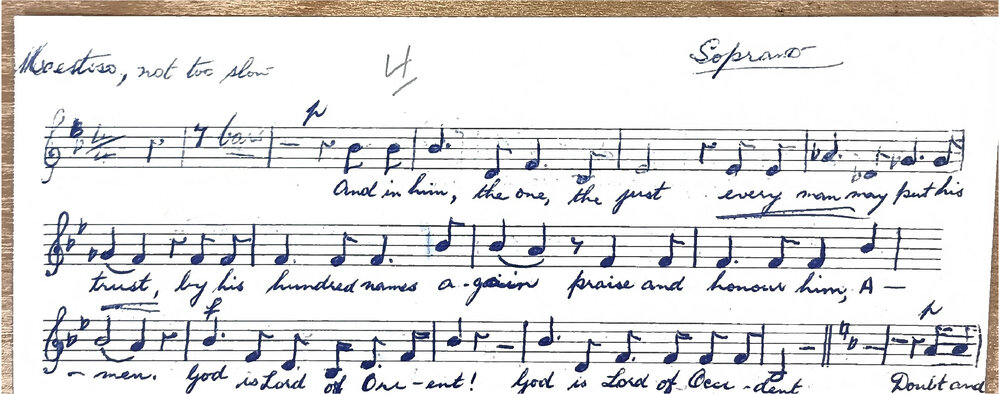 Maestoso, not too slow 4 Soprano
p
7 bars
And in him, the one, the just every man may put his
trust, by his hundred names a-gain praise and honour him, A-
f p
-men. God is Lord of Ori-ent! God is Lord of Occi-dent Doubt and